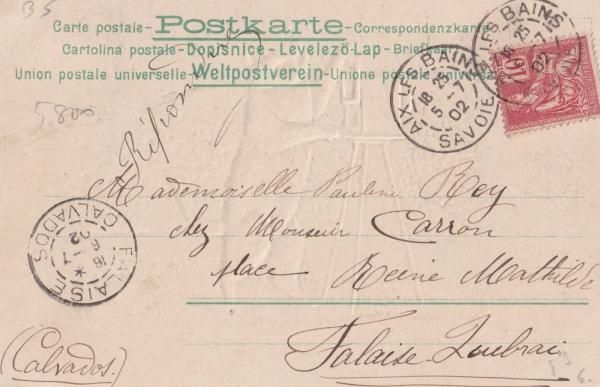 BS
Carte postale - Postkarte - Correspondenzkarte
Cartolina postale - Dopisnice - Levelező-Lap - Briefkaart
Union postale universelle - Weltpostverein - Unione postale universale
5800
AIX-LES-BAINS
18 25
5 - 7
02
SAVOIE
AIX-LES-BAINS
18 25
7
02
10
Mademoiselle Pauline Rey
chez Monsieur Carron
place Reine Mathilde
Falaise
(Calvados.)
FALAISE
CALVADOS
18
6 - 7
02
6.